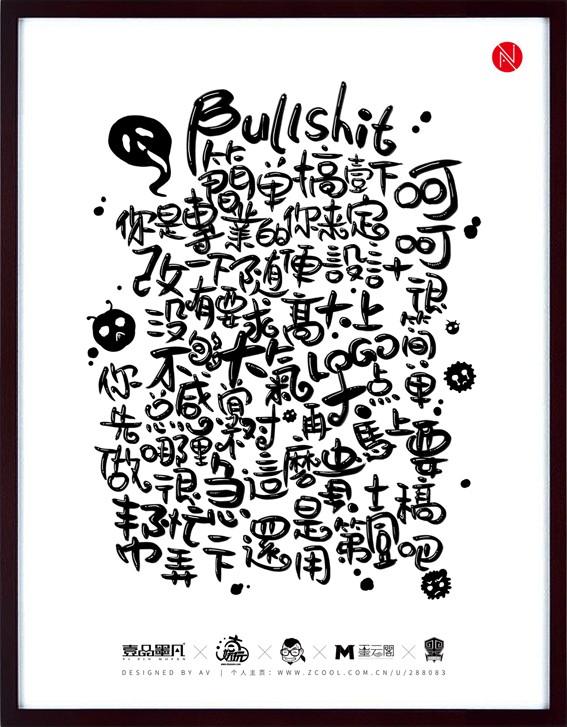 Bullshit
簡单搞壹下
呵呵
你是專業的你来定
改一下随便設計
很简单
没有要求高大上
不够大氣LOGO大点
你先做
总感觉哪里不对
再
馬上要
很急這麼貴
土
幫忙弄一下還是用第壹稿吧
壹品墨凡
墨云閣
DESIGNED BY AV | 个人主页：WWW.ZCOOL.COM.CN/U/288083